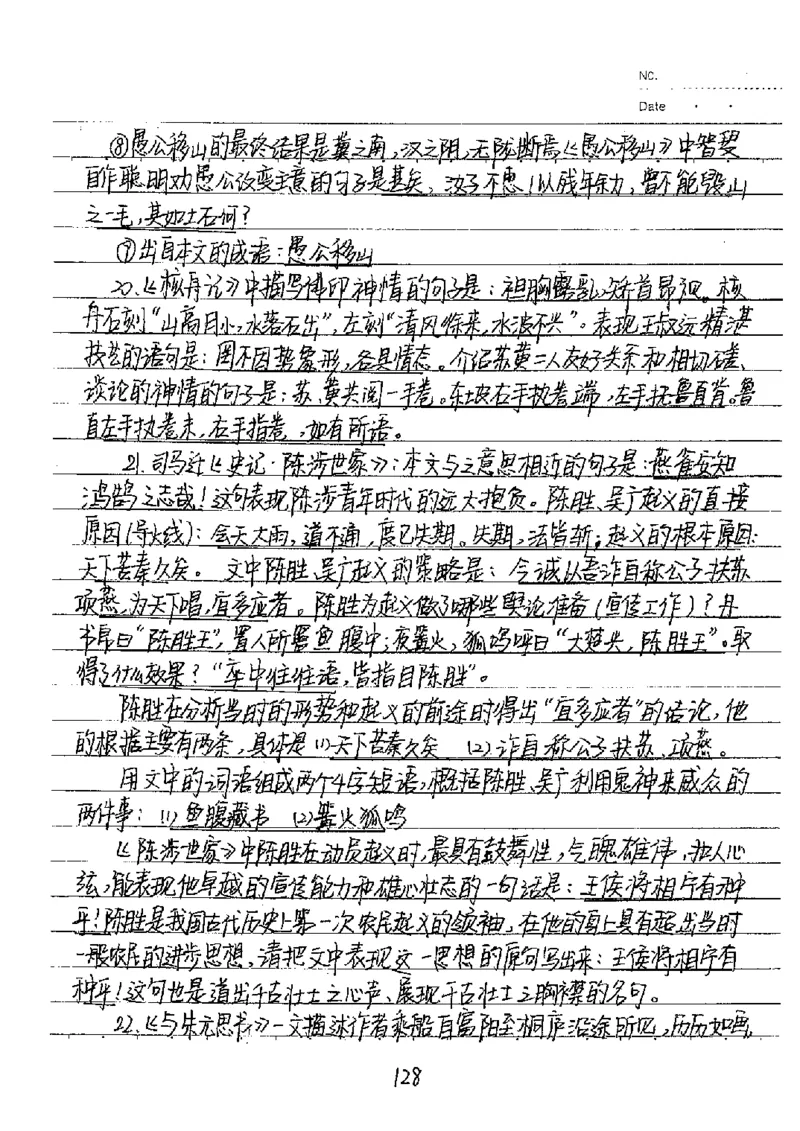 NO.
Date
⑧愚公移山的最终结果是冀之南,汉之阴,无陇断焉《愚公移山》中智叟
自作聪明劝愚公改变主意的句子是甚矣,汝子不惠!以残年余力,曾不能毁山
之一毛,其如土石何?
⑨出自本文的成语:愚公移山
20.《核舟记》中描写佛印神情的句子是:袒胸露乳,矫首昂视。核
舟右刻“山高月小,水落石出”,左刻“清风徐来,水波不兴”。表现王叔远精湛
技艺的语句是:罔不因势象形,各具情态。介绍苏黄二人友好关系和相切磋、
谈论的神情的句子是:苏、黄共阅一手卷。东坡右手执卷端,左手抚鲁直背。鲁
直左手执卷末,右手指卷,如有所语。
21.司马迁《史记·陈涉世家》:本文与之意思相近的句子是:燕雀安知
鸿鹄之志哉!这句表现陈涉青年时代的远大抱负。陈胜、吴广起义的直接
原因(导火线):会天大雨,道不通,度已失期。失期,法皆斩;起义的根本原因:
天下苦秦久矣。文中陈胜、吴广起义的策略是:今诚以吾诈自称公子扶苏
项燕,为天下唱,宜多应者。陈胜为起义做了哪些舆论准备(宣传工作)?丹
书帛曰“陈胜王”,置人所罾鱼腹中;夜篝火,狐鸣呼曰“大楚兴,陈胜王”。取
得了什么效果?“卒中往往语,皆指目陈胜”。
陈胜在分析当时的形势和起义的前途时得出“宜多应者”的结论,他
的根据主要有两条,具体是(1)天下苦秦久矣 (2)诈自称公子扶苏、项燕。
用文中的词语组成两个4字短语,概括陈胜、吴广利用鬼神来威众的
两件事:(1)鱼腹藏书 (2)篝火狐鸣
《陈涉世家》中陈胜在动员起义时,最具有鼓舞性,气魄雄伟,扣人心
弦,能表现他卓越的宣传能力和雄心壮志的一句话是:王侯将相宁有种
乎!陈胜是我国古代历史上第一次农民起义的领袖,在他的身上具有超出当时
一般农民的进步思想,请把文中表现这一思想的原句写出来:王侯将相宁有
种乎!这句也是道出千古壮士之心声、展现千古壮士之胸襟的名句。
22.《与朱元思书》一文描述作者乘船自富阳至桐庐沿途所见,历历如画,
128